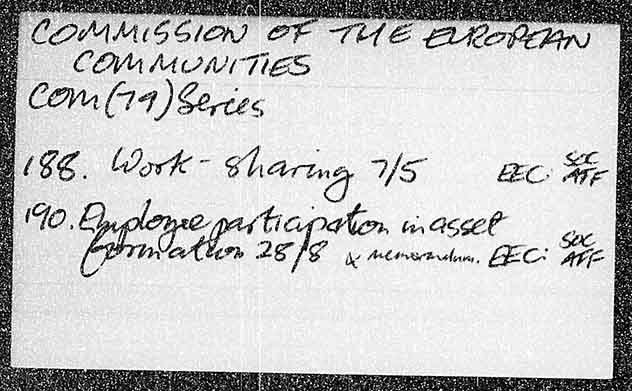 COMMISSION OF THE EUROPEAN
COMMUNITIES
COM(79) Series
188. Work-sharing 7/5 EEC: SOC AFF
190. Employee participation in asset
formation 28/8 & memorandum. EEC: SOC AFF